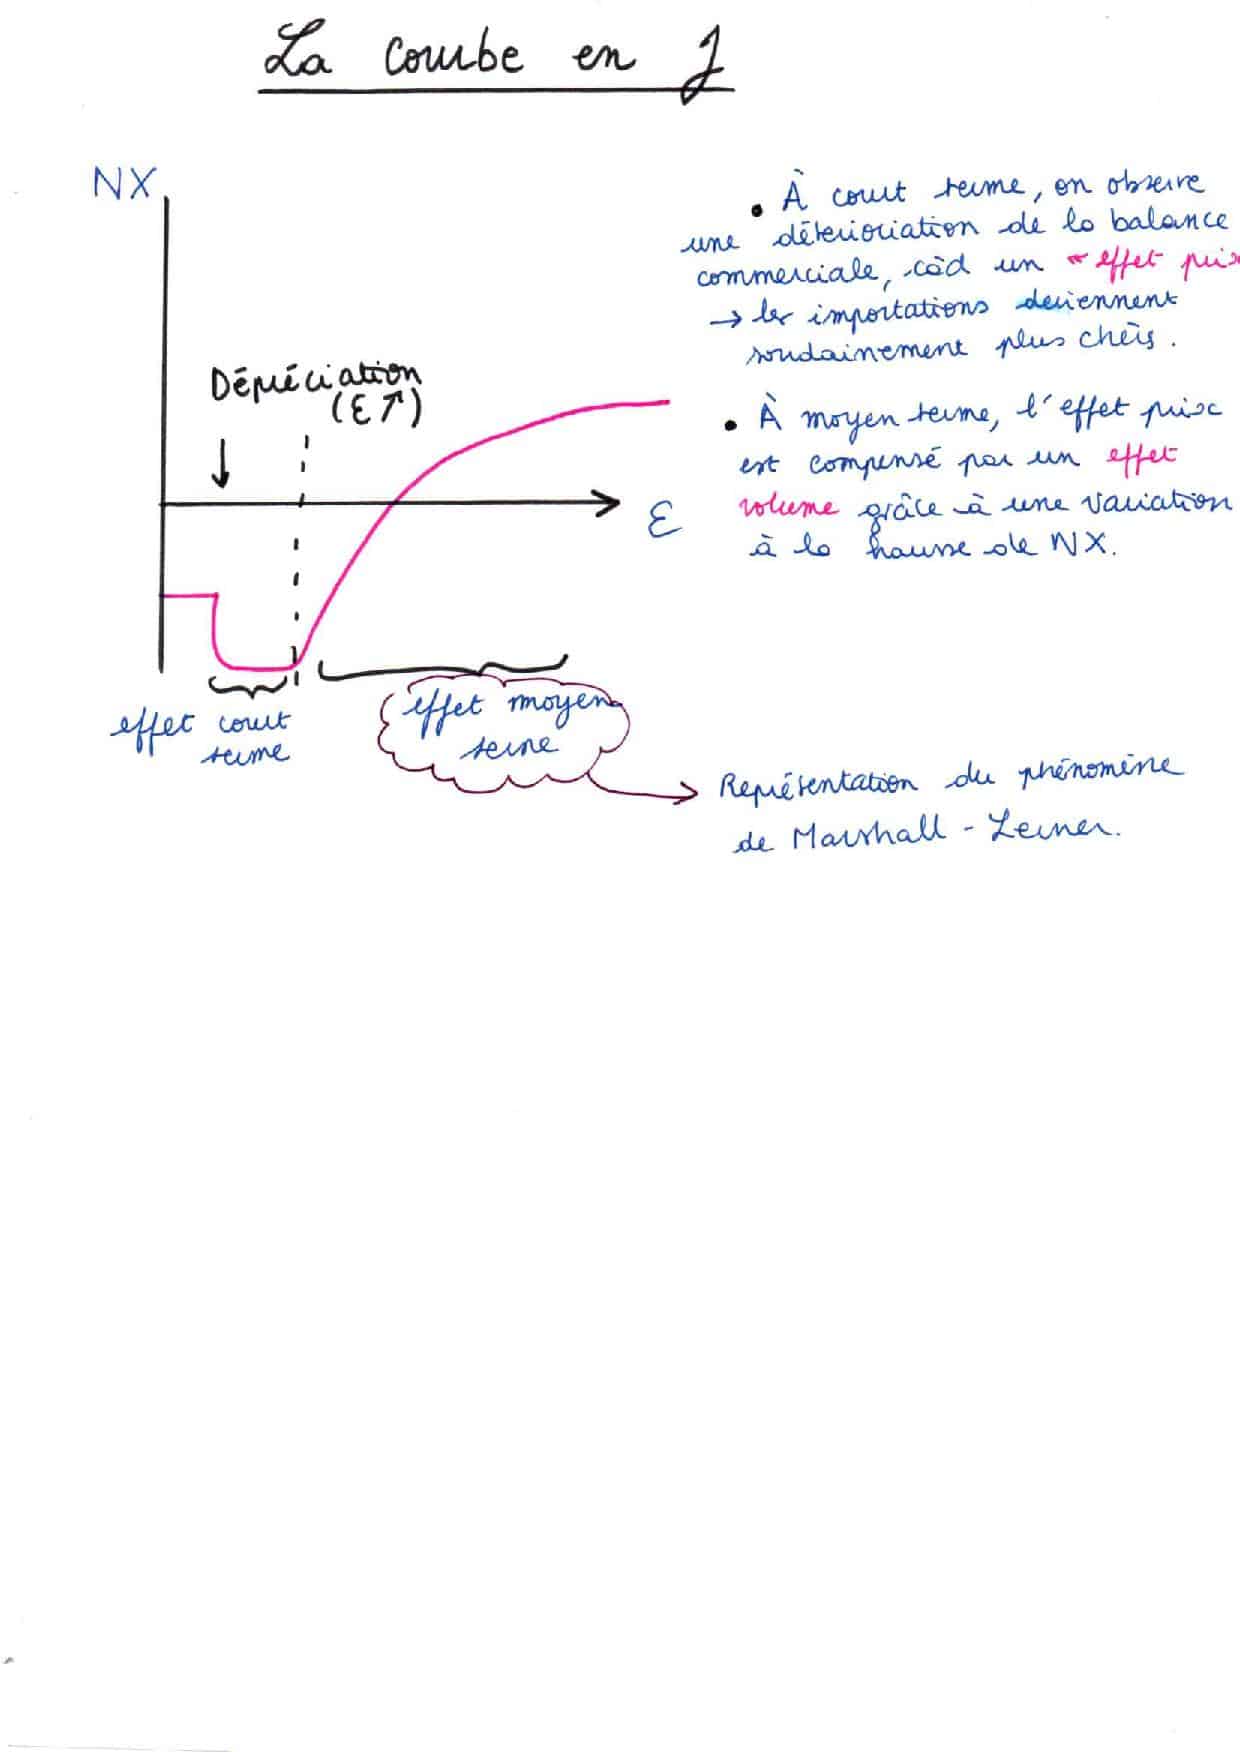 La courbe en J
NX
Dépréciation
(ε↑)
ε
effet court
terme
effet moyen
terme
• À court terme, on observe
une déterioriation de la balance
commerciale, càd un effet prix
→ les importations deviennent
soudainement plus chèrs.
• À moyen terme, l'effet prix
est compensé par un effet
volume grâce à une variation
à la hausse de NX.
Représentation du phénomène
de Marshall - Lerner.